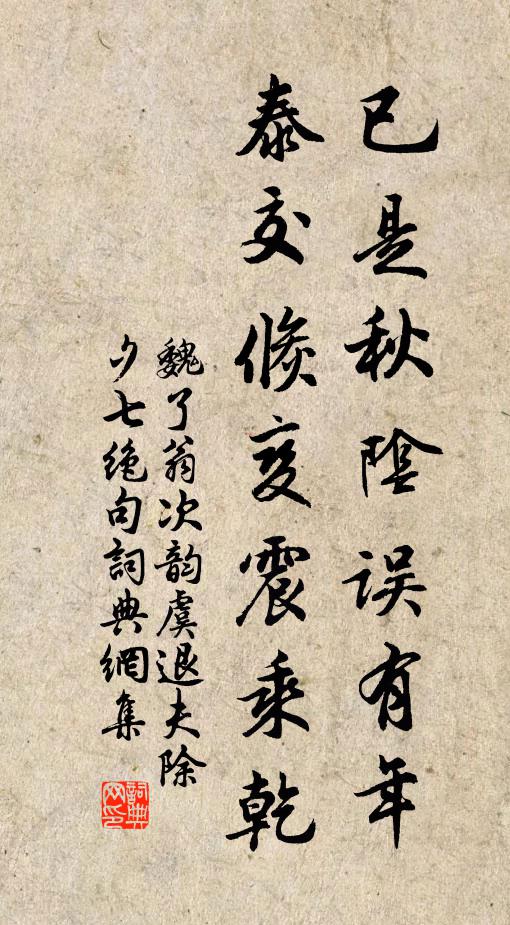 已是秋陰误有年
泰交倐变震乘乾
魏了翁次韵虞退夫除
夕七绝句詞典網集
詞典
网印